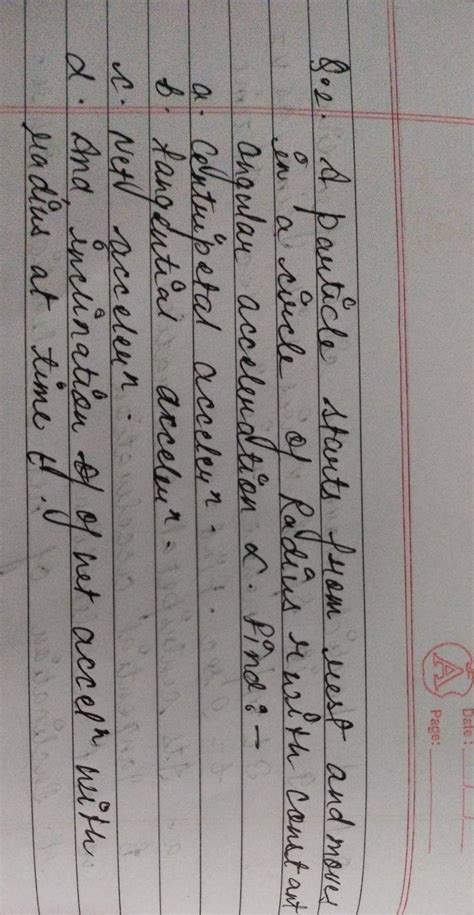 Date:
Page:
A
Q.2. A particle starts from rest and moves
in a circle of Radius r with constant
angular acceleration α. Find:-
a. Centripetal acceleⁿ.
b. tangential acceleⁿ.
c. Net acceleⁿ.
d. And inclination of of net accelⁿ with
radius at time t.